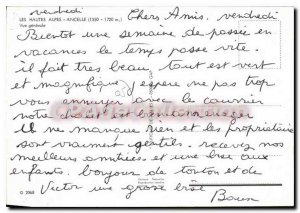 vendredi
LES HAUTES ALPES - ANCELLE (1350 - 1700 m.)
Vue générale
Chers Amis. vendredi
Bientôt une semaine de passée en
vacances le temps passe vite.
il fait très beau, tout est vert
et magnifique j espere ne pas trop
vous ennuyer avec le courrier
notre chalet est
il ne manque rien et les propriétaire
sont vraiment gentils. recevez nos
meilleurs amitiées et une bise aux
enfants. bonjour de tonton et de
Victor une grosse bise